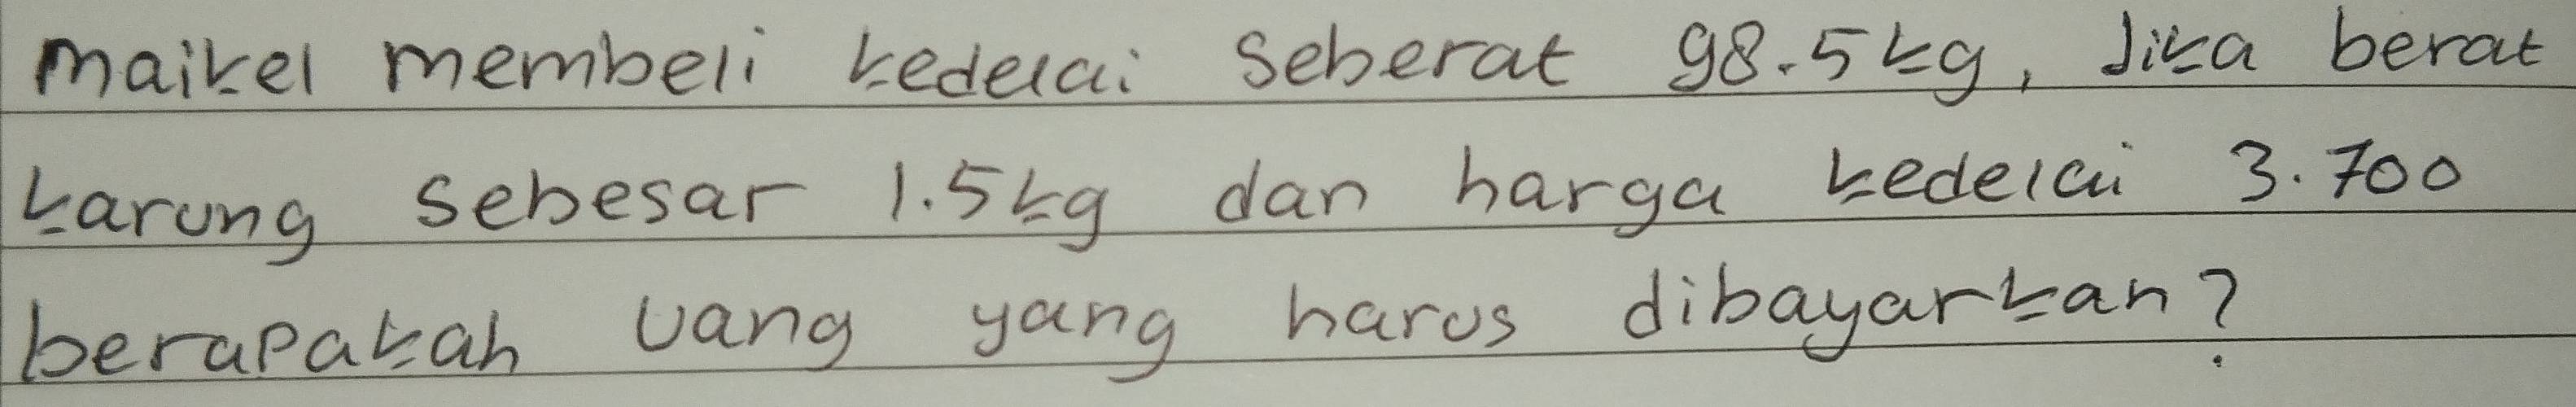 Maikel membeli kedelai seberat 98.5 kg, Jika berat
karung sebesar 1.5 kg dan harga kedelai 3.700
berapakah uang yang harus dibayarkan?